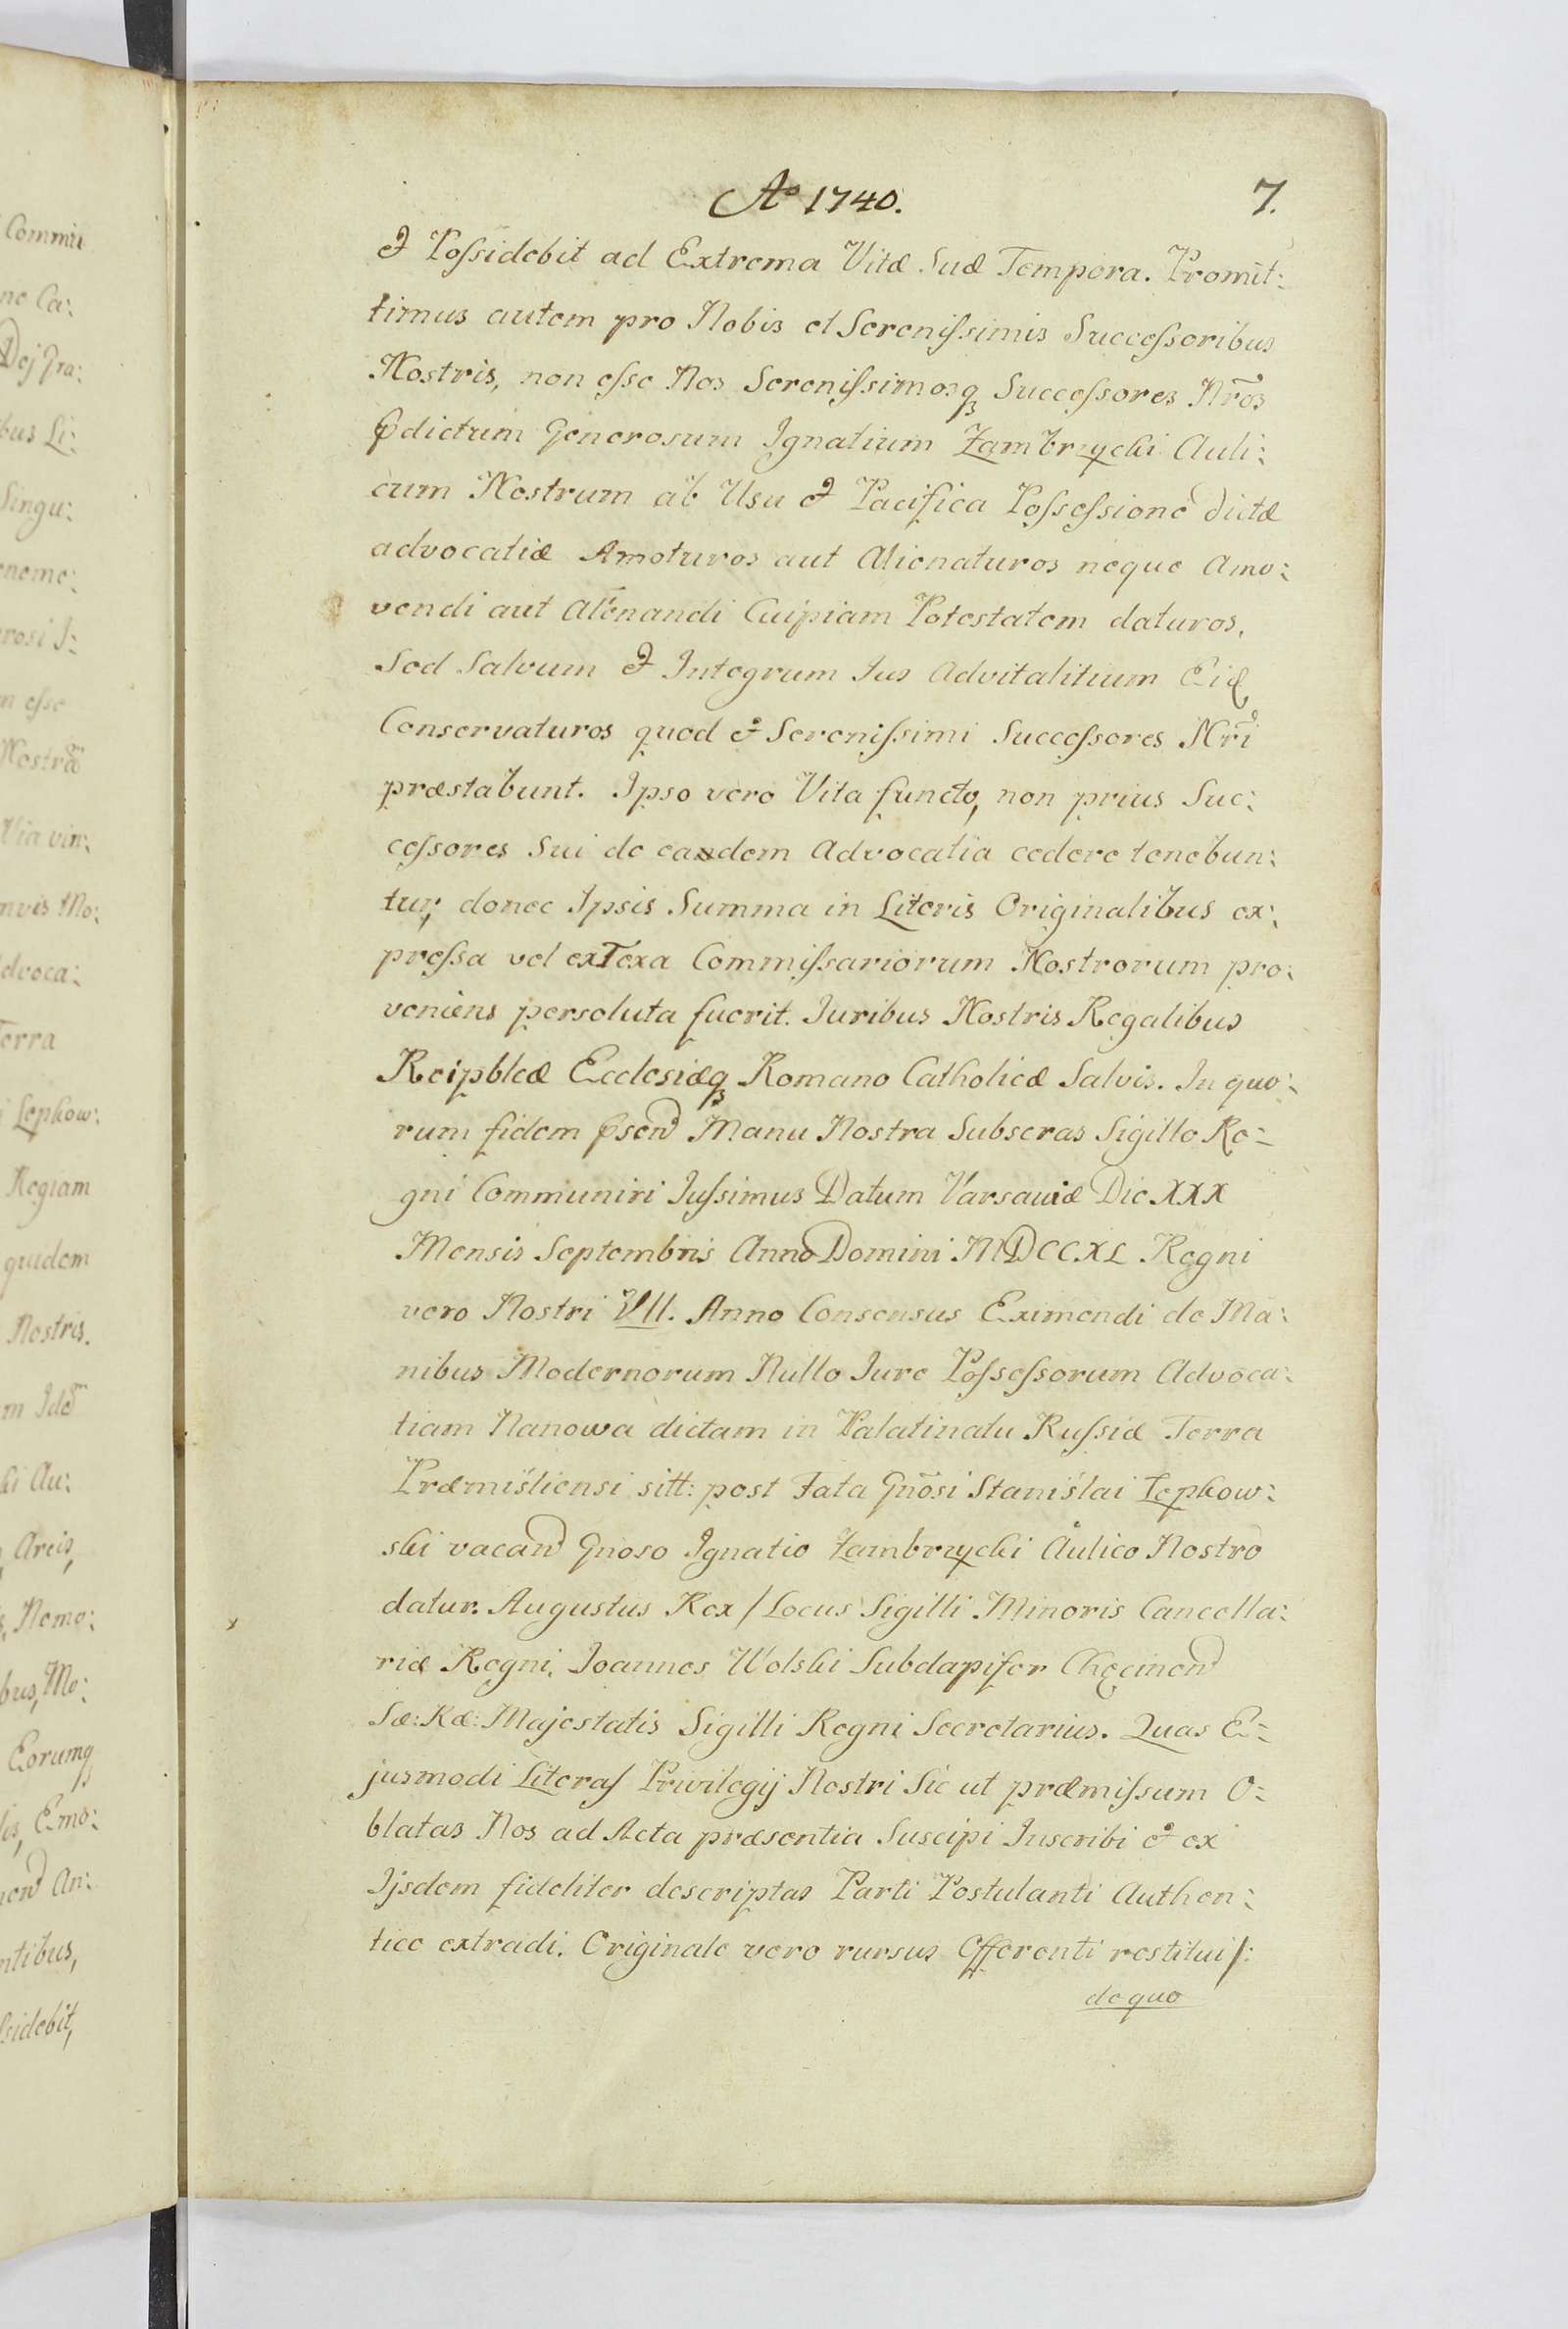 Aº 1740.
7.
& Poſsidebit ad Extrema Vitæ Suæ Tempora. Promit:
timus autem pro Nobis et Sereniſsimis Succeſsoribus
Nostris, non eſse Nos Sereniſsimosq Succeſsores Nr̃os
p̱dictum Generosum Ignatium Zambrzycki Auli:
cum Nostrum ab Usu & Pacifica Poſseſsione dictæ
advocatiæ Amoturos aut Alienaturos neque Amo:
vendi aut Alienandi Cuipiam Potestatem daturos,
Sed Salvum & Integrum Jus Advitalitium Eid
Conservaturos quod & Sereniſsimi Succeſsores Nr̃i
præstabunt. Ipso vero Vita functo, non prius Suc:
ceſsores Sui de eadem Advocatia cedere tenebun:
tur, donec Ipsis Summa in Literis Originalibus ex:
preſsa vel exTexa Commiſsariorum Nostrorum pro:
veniens persoluta fuerit. Juribus Nostris Regalibus
Reipblcæ Ecclesiæq Romano Catholicæ Salvis. In quo:
rum fidem p̱send Manu Nostra Subscras Sigillo Re=
gni Communiri Juſsimus Datum Varsaviæ Die XXX
Mensis Septembris Anno Domini MDCCXL Regni
vero Nostri VII. Anno Consensus Eximendi de Ma:
nibus Modernorum Nullo Jure Poſseſsorum Advoca:
tiam Nanowa dictam in Palatinatu Ruſsiæ Terra
Præmisliensi sitt: post Fata Gnõsi Stanislai Łepkow:
ski vacand Gnoso Ignatio Zambrzycki Aulico Nostro
datur. Augustus Rex / Locus Sigilli Minoris Cancella:
riæ Regni. Joannes Wolski Subdapifer Chęcinend
Sæ: Ræ: Majestatis Sigilli Regni Secretarius. Quas E=
jusmodi Literaſ Privilegij Nostri Sic ut præmiſsum O=
blatas Nos ad Acta præsentia Suscipi Inscribi & ex
Ijsdem fideliter descriptas Parti Postulanti Authen:
tice extradi. Originale vero rursus Offerenti restitui/:
de quo